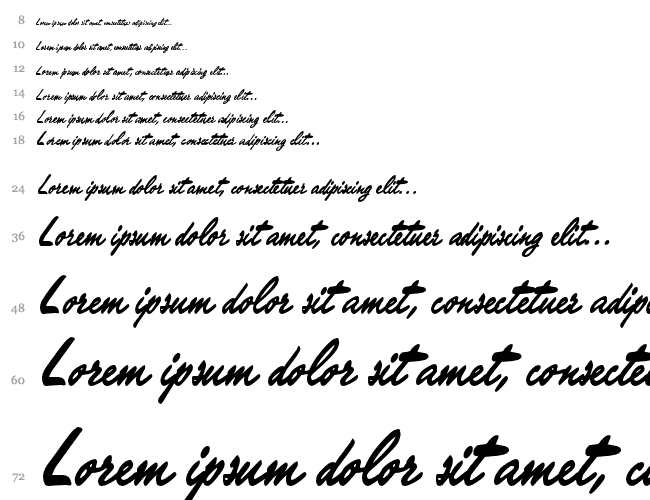 8 Lorem ipsum dolor sit amet, consectetuer adipiscing elit...
10 Lorem ipsum dolor sit amet, consectetuer adipiscing elit...
12 Lorem ipsum dolor sit amet, consectetuer adipiscing elit...
14 Lorem ipsum dolor sit amet, consectetuer adipiscing elit...
16 Lorem ipsum dolor sit amet, consectetuer adipiscing elit...
18 Lorem ipsum dolor sit amet, consectetuer adipiscing elit...
24 Lorem ipsum dolor sit amet, consectetuer adipiscing elit...
36 Lorem ipsum dolor sit amet, consectetuer adipiscing elit...
48 Lorem ipsum dolor sit amet, consectetuer adipi
60 Lorem ipsum dolor sit amet, consecte
72 Lorem ipsum dolor sit amet, c